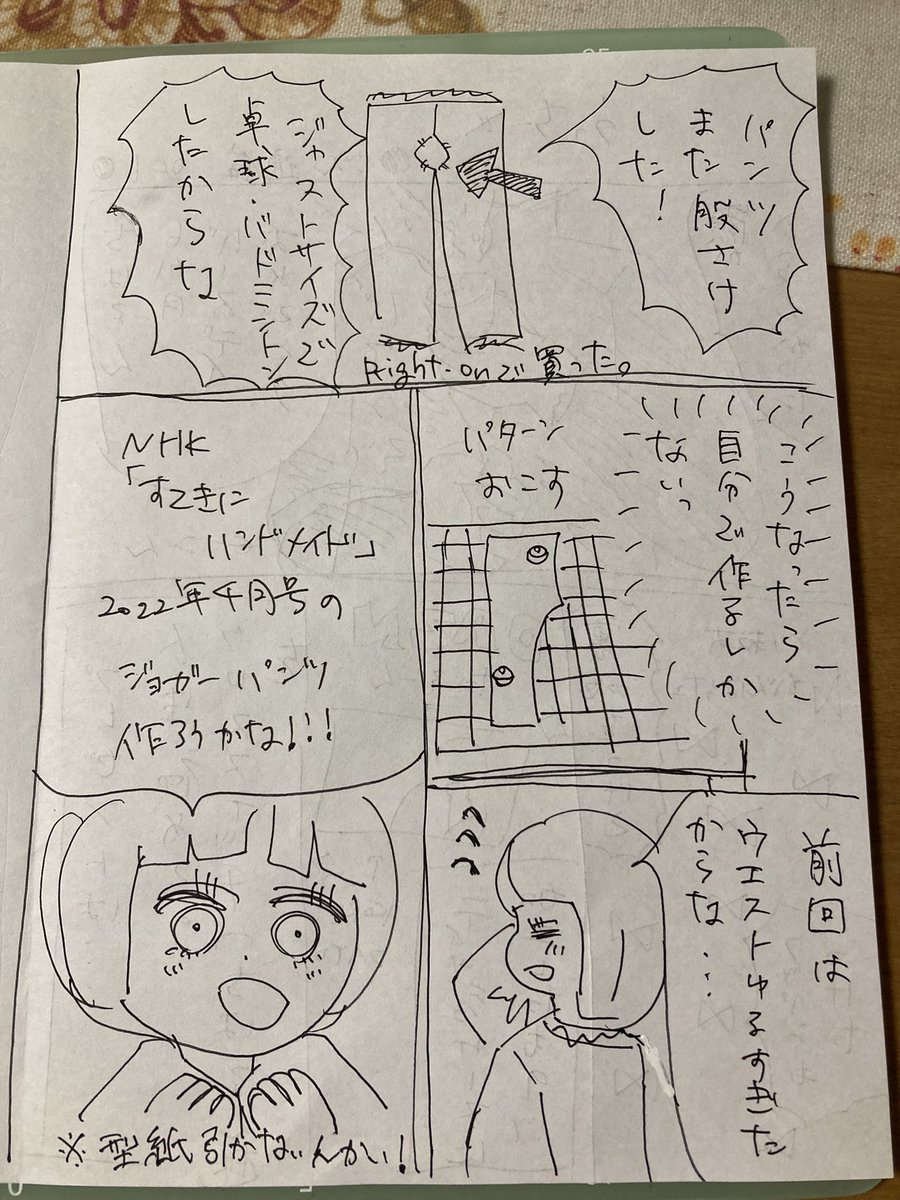 パンツ
また股さけ
した!
ジャストサイズで
卓球・バドミントン
したからな
Right-onで買った。
こうなったら
自分で作るしか
ないっ
パターン
おこす
前回は
ウエストゆるすぎた
からな…
NHK
「すてきに
ハンドメイド」
2022年4月号の
ジョガーパンツ
作ろうかな!!!
※型紙引かないんかい!